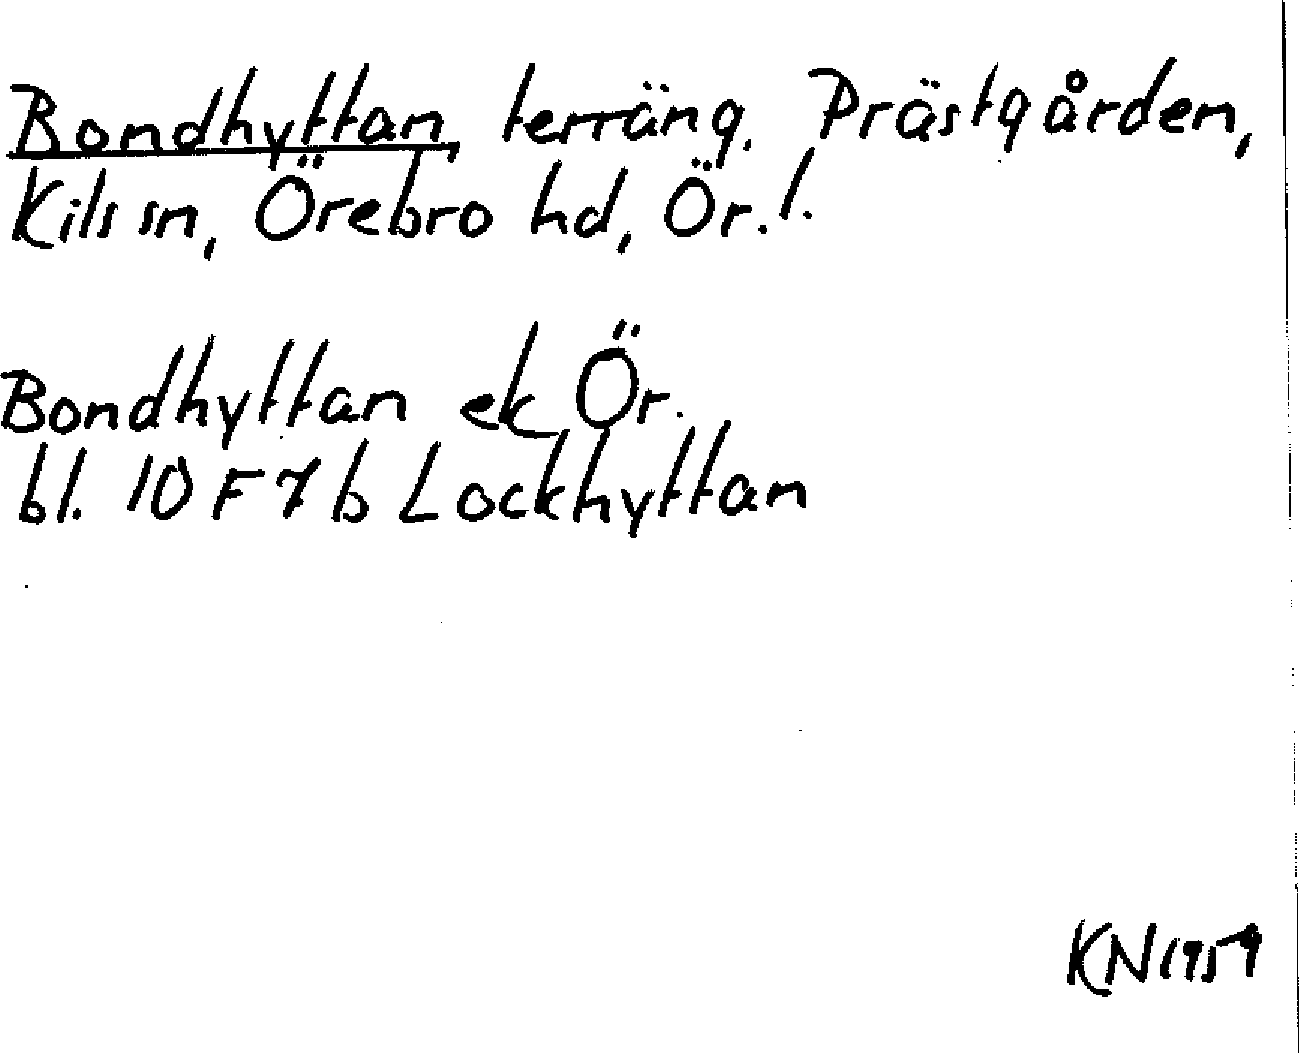 Bondhyttan, terräng. Prästgården,
Kils sn, Örebro hd, Ör. l.
Bondhyttan ek Ör.
bl. 10 F 7 b Lockhyttan
KN 1959